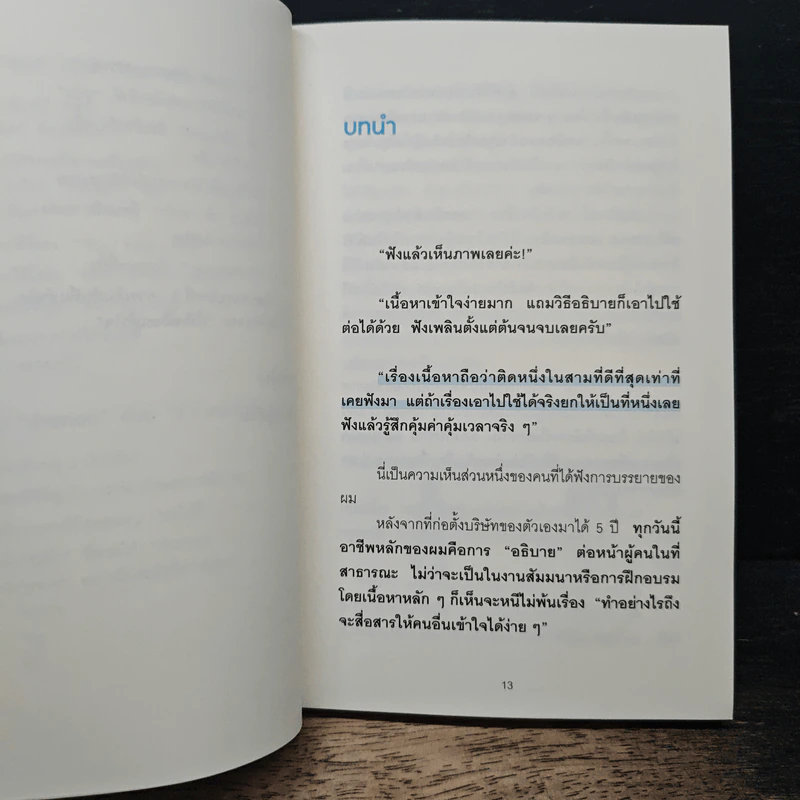 บทนำ
“ฟังแล้วเห็นภาพเลยค่ะ!”
“เนื้อหาเข้าใจง่ายมาก แถมวิธีอธิบายก็เอาไปใช้
ต่อได้ด้วย ฟังเพลินตั้งแต่ต้นจนจบเลยครับ”
“เรื่องเนื้อหาถือว่าติดหนึ่งในสามที่ดีที่สุดเท่าที่
เคยฟังมา แต่ถ้าเรื่องเอาไปใช้ได้จริงยกให้เป็นที่หนึ่งเลย
ฟังแล้วรู้สึกคุ้มค่าคุ้มเวลาจริง ๆ”
นี่เป็นความเห็นส่วนหนึ่งของคนที่ได้ฟังการบรรยายของ
ผม
หลังจากที่ก่อตั้งบริษัทของตัวเองมาได้ 5 ปี ทุกวันนี้
อาชีพหลักของผมคือการ “อธิบาย” ต่อหน้าผู้คนในที่
สาธารณะ ไม่ว่าจะเป็นในงานสัมมนาหรือการฝึกอบรม
โดยเนื้อหาหลัก ๆ ก็เห็นจะหนีไม่พ้นเรื่อง “ทำอย่างไรถึง
จะสื่อสารให้คนอื่นเข้าใจได้ง่าย ๆ”
13